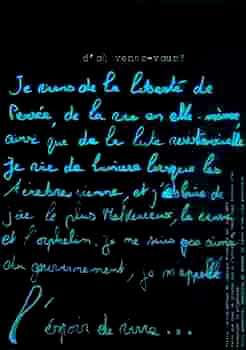 d'où venez-vous?
Je viens de la liberté de
Pensée, de la vie en elle-même
ainsi que de la lute existencielle
Je vie de lumière lorsque les
ténèbres vienne, et j'éclaire de
joie le plus Malheureux, la veuve
et l'orphelin. je ne suis pas aimé
du gouvernement, je m'appelle
l'
Espoir de vivre ...